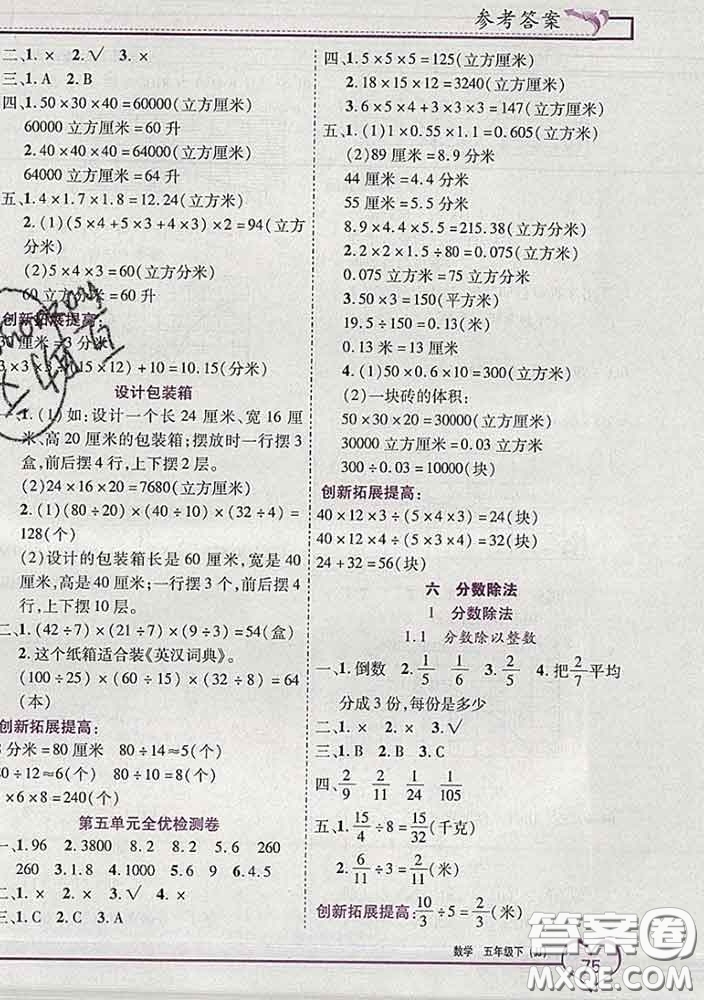 参考答案
二、1.× 2.√ 3.×
三、1.A 2.B
四、1.50×30×40=60000(立方厘米)
60000立方厘米=60升
2.40×40×40=64000(立方厘米)
64000立方厘米=64升
五、1.4×1.7×1.8=12.24(立方米)
2.(1)(5×4+5×3+4×3)×2=94(立方
分米)
(2)5×4×3=60(立方分米)
60立方分米=60升
创新拓展提高:
厘米=3分米
3×3×3÷(15×12)+10=10.15(分米)
设计包装箱
1.(1)如:设计一个长24厘米、宽16厘
米、高20厘米的包装箱;摆放时一行摆3
盒,前后摆4行,上下摆2层。
(2)24×16×20=7680(立方厘米)
2.(1)(80÷20)×(80÷10)×(32÷4)=
128(个)
(2)设计的包装箱长是60厘米,宽是40
厘米,高是40厘米;一行摆3个,前后摆4
行,上下摆10层。
二、1.(42÷7)×(21÷7)×(9÷3)=54(盒)
2.这个纸箱适合装《英汉词典》。
(100÷25)×(60÷15)×(32÷8)=64
(本)
创新拓展提高:
8分米=80厘米 80÷14≈5(个)
80÷12≈6(个)
×6×8=240(个)
第五单元全优检测卷
一、1.96 2.3800 8.2 8.2 5.26 260
260 3.1.8 4.1500 1500 1.5
二、1.× 2.× 3.√ 4.×
三、1.C 2.C 3.A
四、1.5×5×5=125(立方厘米)
2.18×15×12=3240(立方厘米)
3.6×5×4+3×3×3=147(立方厘米)
五、1.(1)1×0.55×1.1=0.605(立方米)
(2)89厘米=8.9分米
44厘米=4.4分米
55厘米=5.5分米
8.9×4.4×5.5=215.38(立方分米)
2.2×2×1.5÷80=0.075(立方米)
0.075立方米=75立方分米
3.50×3=150(平方米)
19.5÷150=0.13(米)
0.13米=13厘米
4.(1)50×10×0.6=300(立方米)
(2)一块砖的体积:
50×30×20=30000(立方厘米)
30000立方厘米=0.03立方米
300÷0.03=10000(块)
创新拓展提高:
40×12×3÷(5×4×3)=24(块)
40×12×4÷(5×3×4)=32(块)
24+32=56(块)
六 分数除法
1 分数除法
1.1 分数除以整数
一、1.倒数 2.1/5 1/6 3.2/5 4.把2/7平均
分成3份,每份是多少
二、1.× 2.× 3.√
三、1.B 2.B 3.C
四、2/9 2/11 1/24 1/105
五、1.15/4÷8=15/32(千克)
2.6/11÷3=2/11(米)
创新拓展提高:10/3÷5=2/3(米)
数学 五年级下(JJ)
75
答案圈
MXQE.COM